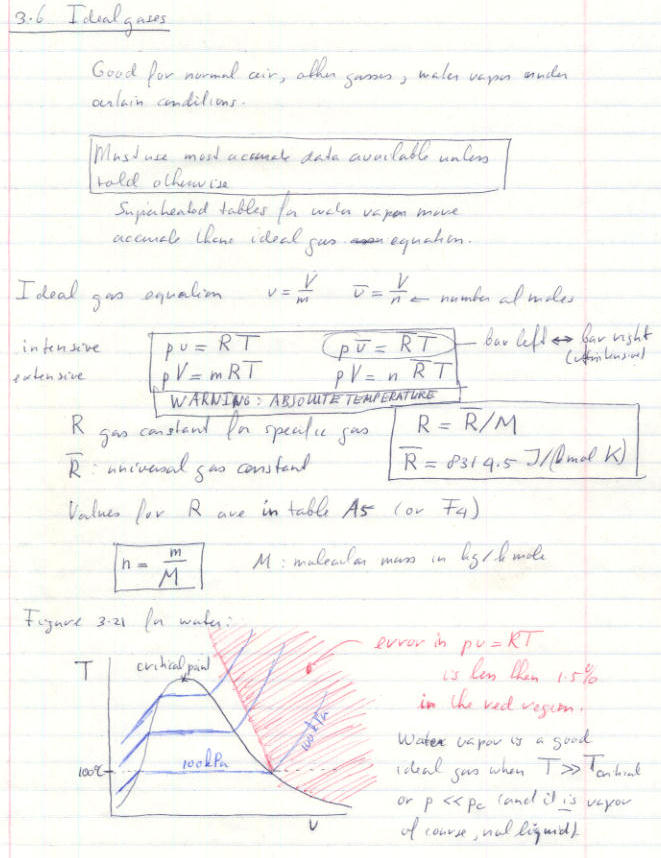 3.6 Ideal gases
Good for normal air, other gasses, water vapor under
certain conditions.
Must use most accurate data available unless
told otherwise
Superheated tables for water vapor more
accurate than ideal gas equation.
Ideal gas equation v = V/m v̅ = V/n ← number of moles
intensive pv = RT pv̅ = R̅T bar left ↔ bar right
(if intensive)
extensive pV = mRT pV = n R̅T
WARNING: ABSOLUTE TEMPERATURE
R gas constant for specific gas R = R̅/M
R̅: universal gas constant R̅ = 8314.5 J/(kmol K)
Values for R are in table A5 (or F4)
n = m/M M: molecular mass in kg/kmole
Figure 3-21 for water:
error in pv = RT
is less then 1.5%
in the red region.
T critical point
100kPa
100°C 100kPa
v
Water vapor is a good
ideal gas when T >> Tcritical
or p << pc (and it is vapor
of course, not liquid)